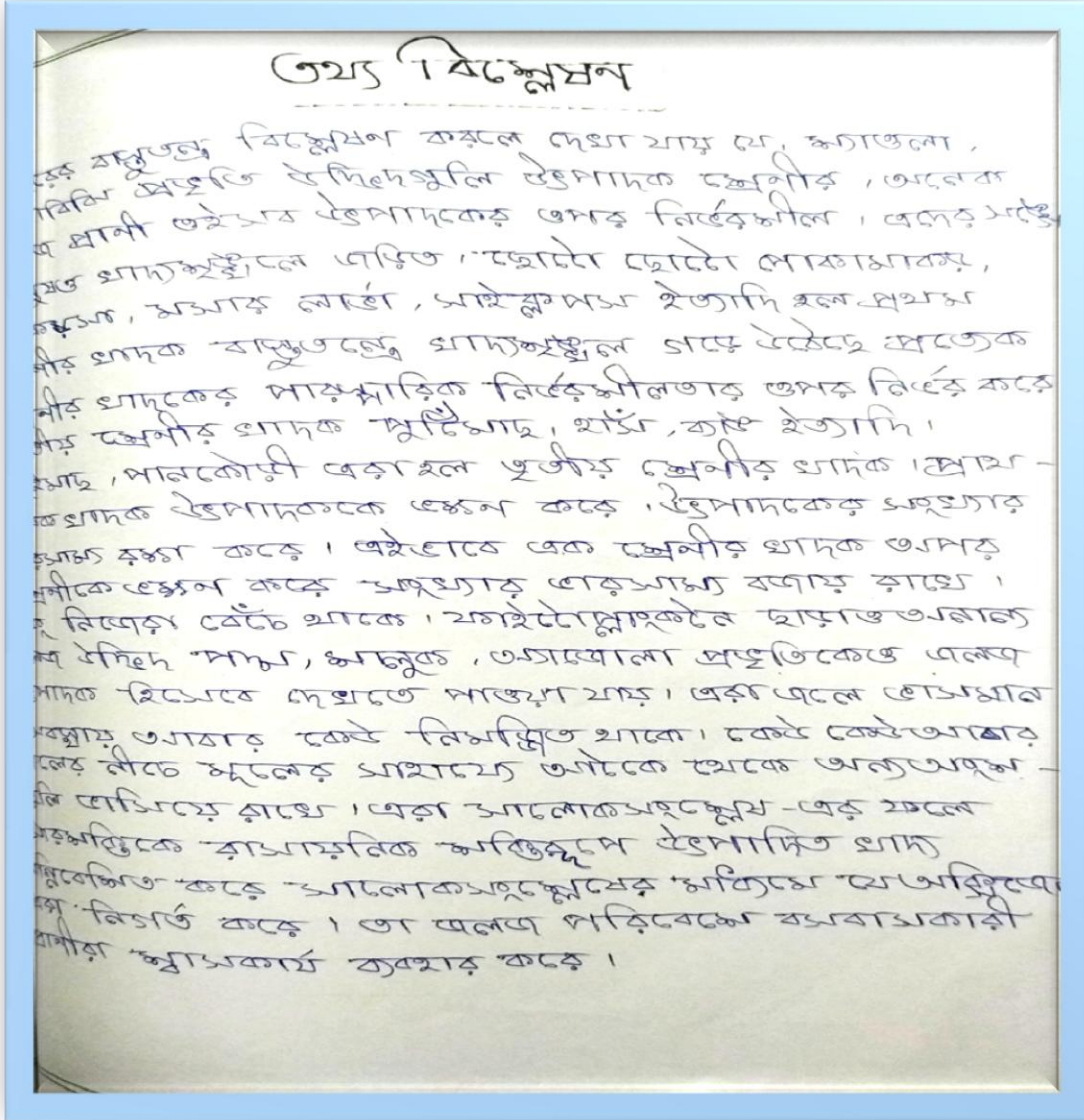 তথ্য বিশ্লেষন
বাস্তুতন্ত্র বিশ্লেষণ করলে দেখা যায় যে, শ্যাওলা,
প্রভৃতি উদ্ভিদগুলি উৎপাদক শ্রেণীর, অনেক
প্রাণী ওইসব উৎপাদকের ওপর নির্ভরশীল। এদের
খাদ্যশৃঙ্খলে জড়িত। ছোটো ছোটো পোকামাকড়,
মসার লার্ভা, সাইক্লপস ইত্যাদি হল প্রথম
খাদক বাস্তুতন্ত্রে খাদ্যশৃঙ্খল গড়ে উঠেছে প্রত্যেক
খাদকের পারস্পারিক নির্ভরশীলতার ওপর নির্ভর করে
শ্রেণীর খাদক পুটিঁমাছ, হাসঁ, ব্যাঙ ইত্যাদি।
পানকৌড়ী এরা হল তৃতীয় শ্রেণীর খাদক। প্রাথ-
খাদক উৎপাদককে ভক্ষন করে। উৎপাদকের সংখ্যার
রক্ষা করে। এইভাবে এক শ্রেণীর খাদক অপর
ভক্ষন করে সংখ্যার ভারসাম্য বজায় রাখে।
নিজেরা বেঁচে থাকে। ফাইটোপ্লাংকটন ছাড়াও অনান্য
উদ্ভিদ পদ্ম, শালুক, অ্যাজোলা প্রভৃতিকেও জলজ
হিসেবে দেখতে পাওয়া যায়। এরা জলে ভাসমান
আবার কেউ নিমজ্জিত থাকে। কেউ কেউ আবার
নীচে মূলের সাহায্যে আটকে থেকে অন্য অংশ-
ভাসিয়ে রাখে। এরা সালোকসংশ্লেষ-এর ফলে
রাসায়নিক শক্তিরূপে উৎপাদিত খাদ্য
করে সালোকসংশ্লেষের মাধ্যিমে যে অক্সিজেন
নির্গত করে। তা জলজ পরিবেশে বসবাসকারী
শ্বাসকার্য ব্যবহার করে।